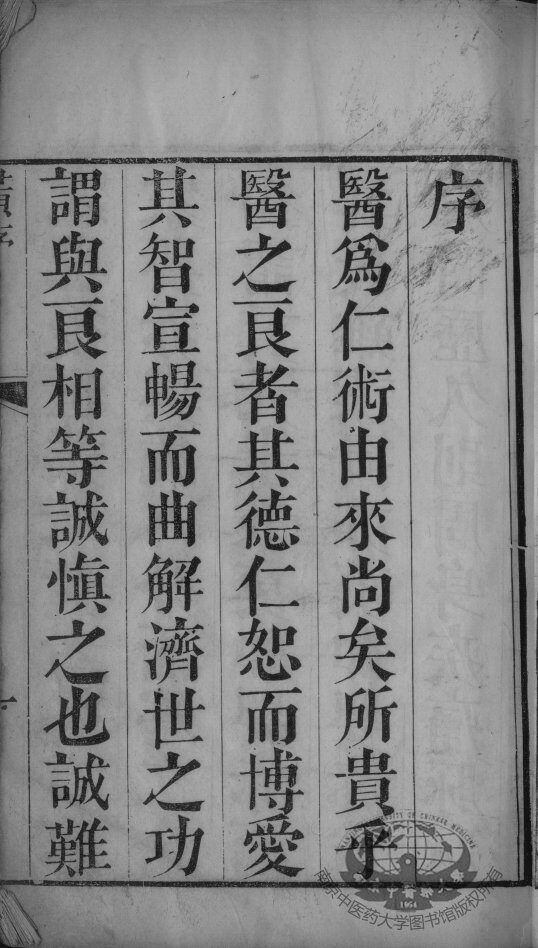 序
醫爲仁術由來尚矣所貴乎
醫之良者其德仁恕而博愛
其智宣暢而曲解濟世之功
謂與良相等誠愼之也誠難
南京中医药大学图书馆版权所有